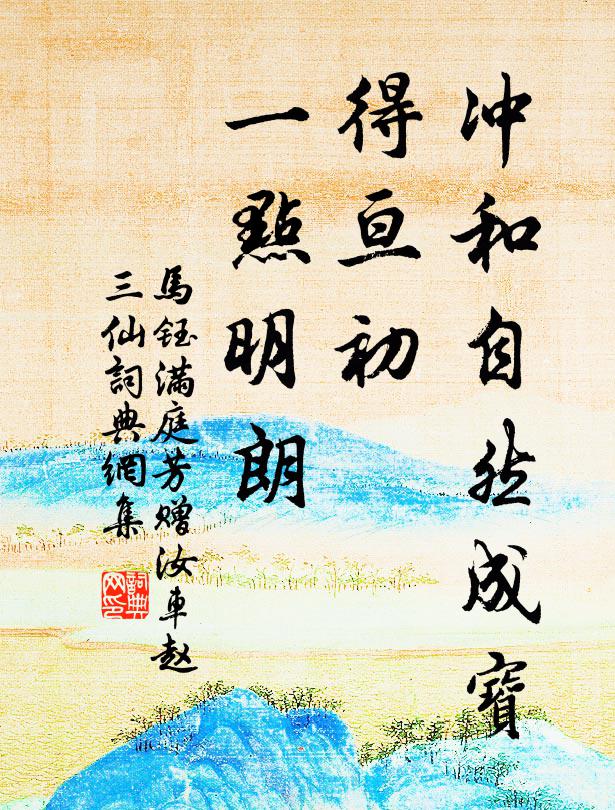 冲和自然成寶
得亘初
一點明朗
馬鈺滿庭芳贈汝車赵
三仙詞典網集
詞典
网印